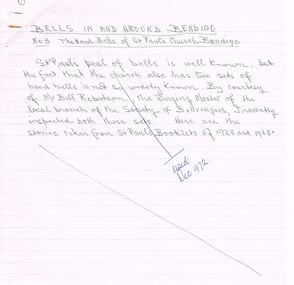 BELLS IN AND AROUND BENDIGO
No 3 The Hand Bells of St Pauls Church Bendigo
St Pauls peal of bells is well known, but
the fact that the church also has two sets of
hand bells is not so widely known. By courtesy
of Mr Bill Robertson, the Ringing Master of the
local branch of the Society of Bellringers, I recently
inspected both these sets. Here are the
stories taken from St Pauls Booklets of 1928 and 1968.
Used
Dec 1972